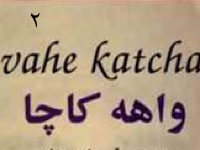 ۲
vahe katcha
واهه کاچا